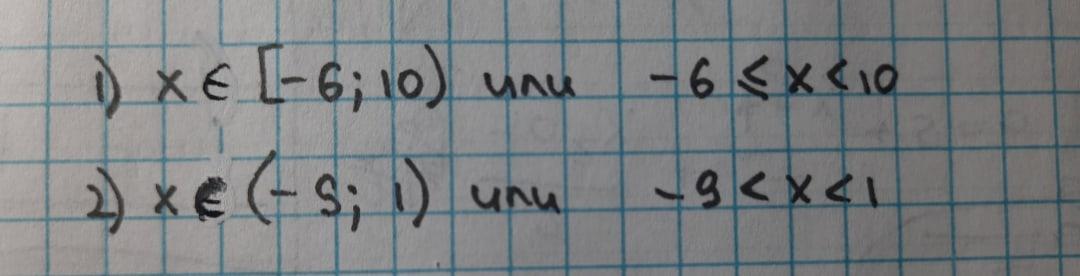 1) x ∈ [-6; 10) или -6 ≤ x < 10
2) x ∈ (-9; 1) или -9 < x < 1